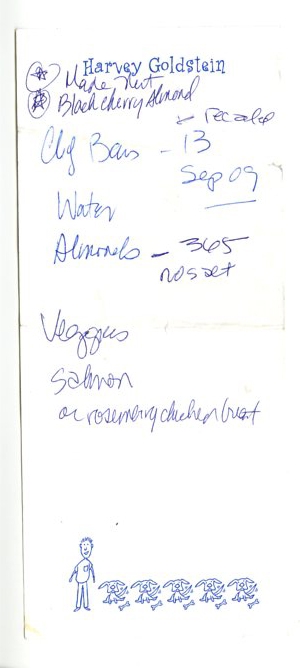 Harvey Goldstein
Maple Nut
Black cherry Almond
recalled
Clif Bars - 13
Sep 09
Water
Almonds - 365
no salt
Veggies
Salmon
or rosemary chicken breast